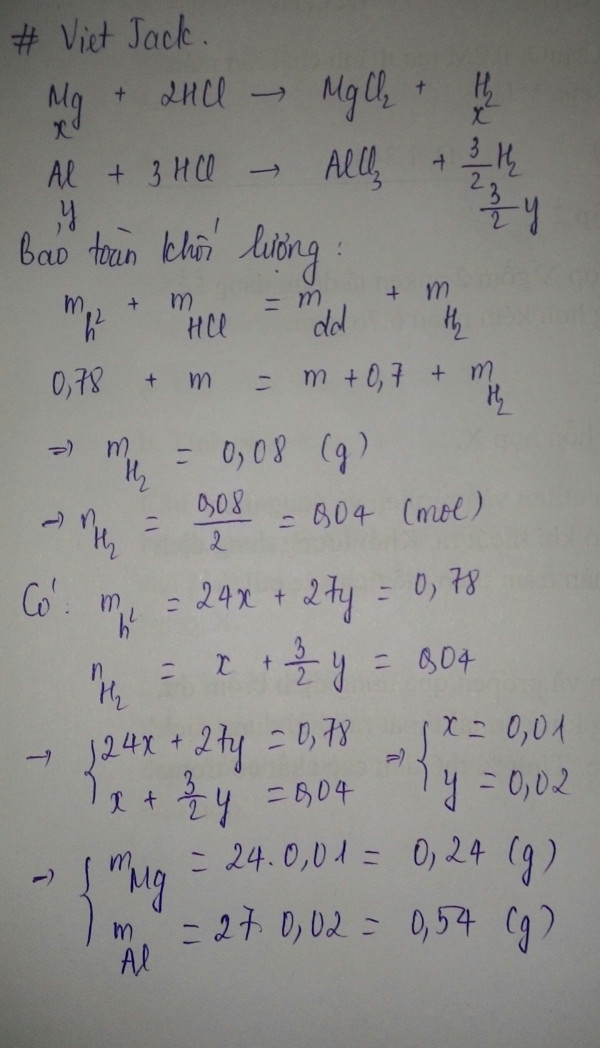 # Viet Jack.
Mg + 2HCl → MgCl₂ + H₂
x x
Al + 3HCl → AlCl₃ + 3/2 H₂
y 3/2 y
Bảo toàn khối lượng:
m_h² + m_HCl = m_dd + m_H₂
0,78 + m = m + 0,7 + m_H₂
=> m_H₂ = 0,08 (g)
→ n_H₂ = 0,08/2 = 0,04 (mol)
Có: m_h² = 24x + 27y = 0,78
n_H₂ = x + 3/2 y = 0,04
→ { 24x + 27y = 0,78 => { x = 0,01
x + 3/2 y = 0,04 y = 0,02
→ { m_Mg = 24.0,01 = 0,24 (g)
m_Al = 27.0,02 = 0,54 (g)